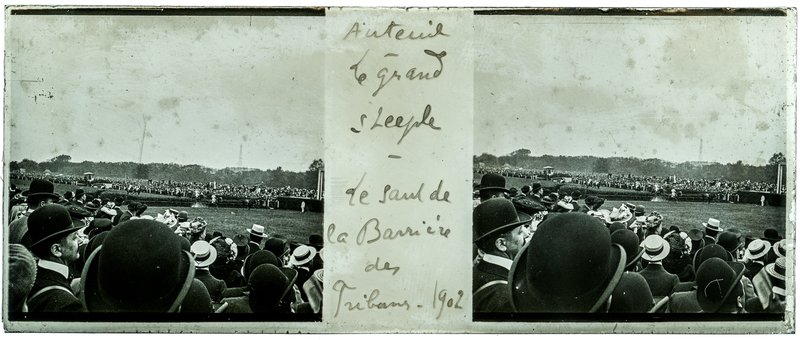 Auteuil
Le grand
steeple
Le saut de
la Barrière
des
Tribunes - 1902